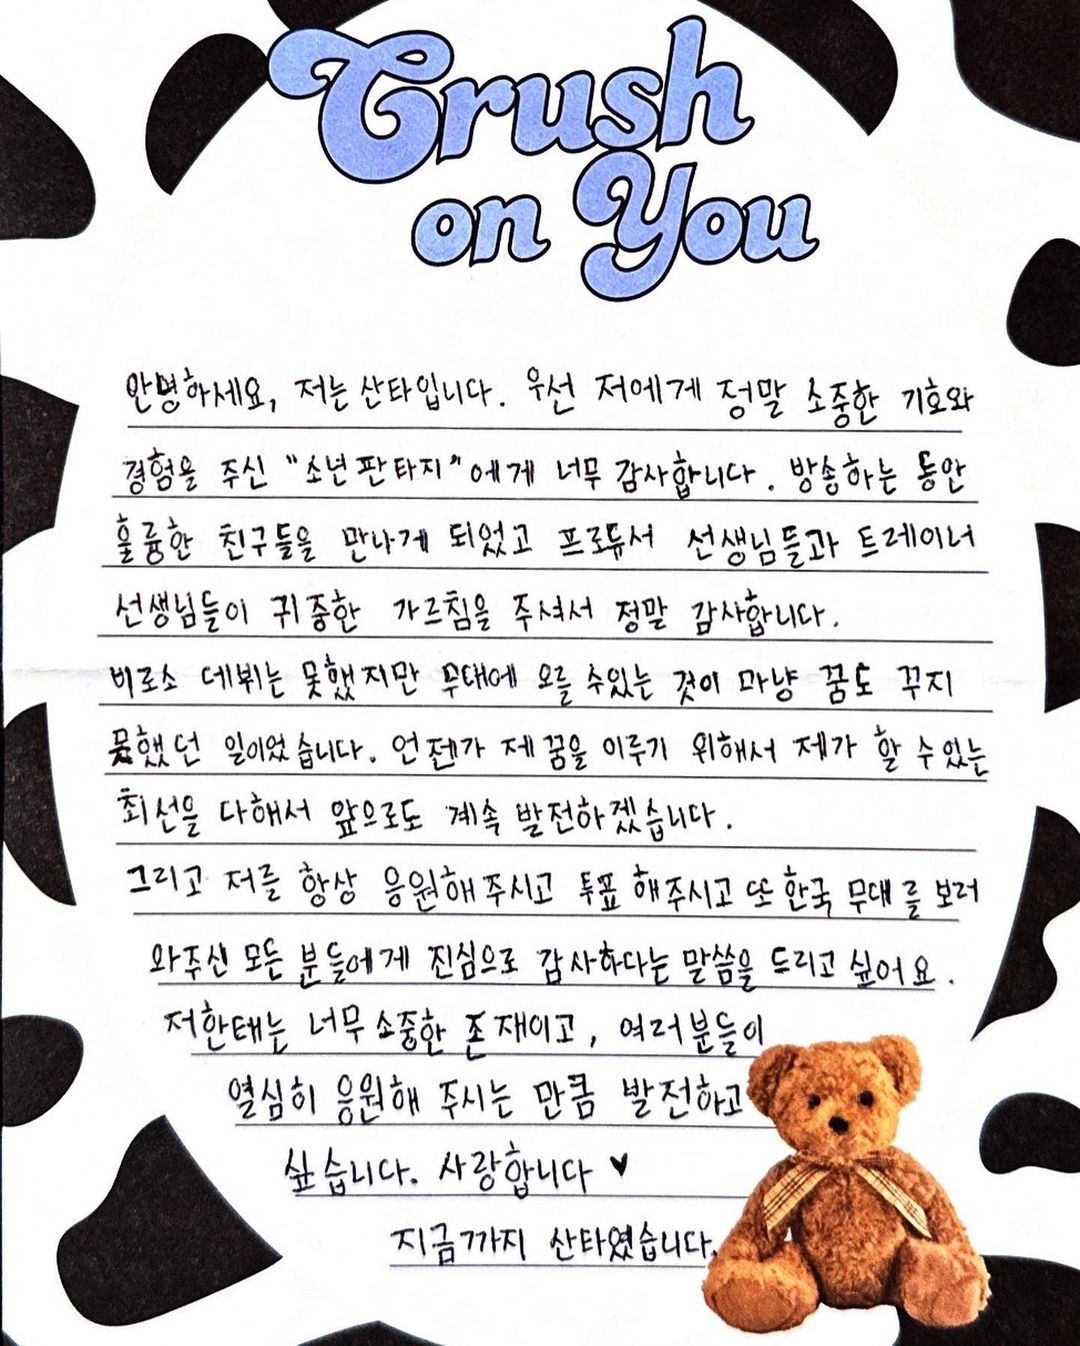 Crush
on You
안녕하세요, 저는 산타입니다. 우선 저에게 정말 소중한 기호와
경험을 주신 "소년판타지"에게 너무 감사합니다. 방송하는 동안
훌륭한 친구들을 만나게 되었고 프로듀서 선생님들과 트레이너
선생님들이 귀중한 가르침을 주셔서 정말 감사합니다.
비로소 데뷔는 못했지만 무대에 오를 수있는 것이 마냥 꿈도 꾸지
못했던 일이었습니다. 언젠가 제 꿈을 이루기 위해서 제가 할 수있는
최선을 다해서 앞으로도 계속 발전하겠습니다.
그리고 저를 항상 응원해주시고 투표 해주시고 또 한국 무대를 보러
와주신 모든 분들에게 진심으로 감사하다는 말씀을 드리고 싶어요.
저한테는 너무 소중한 존재이고, 여러분들이
열심히 응원해 주시는 만큼 발전하고
싶습니다. 사랑합니다 ♥
지금까지 산타였습니다.